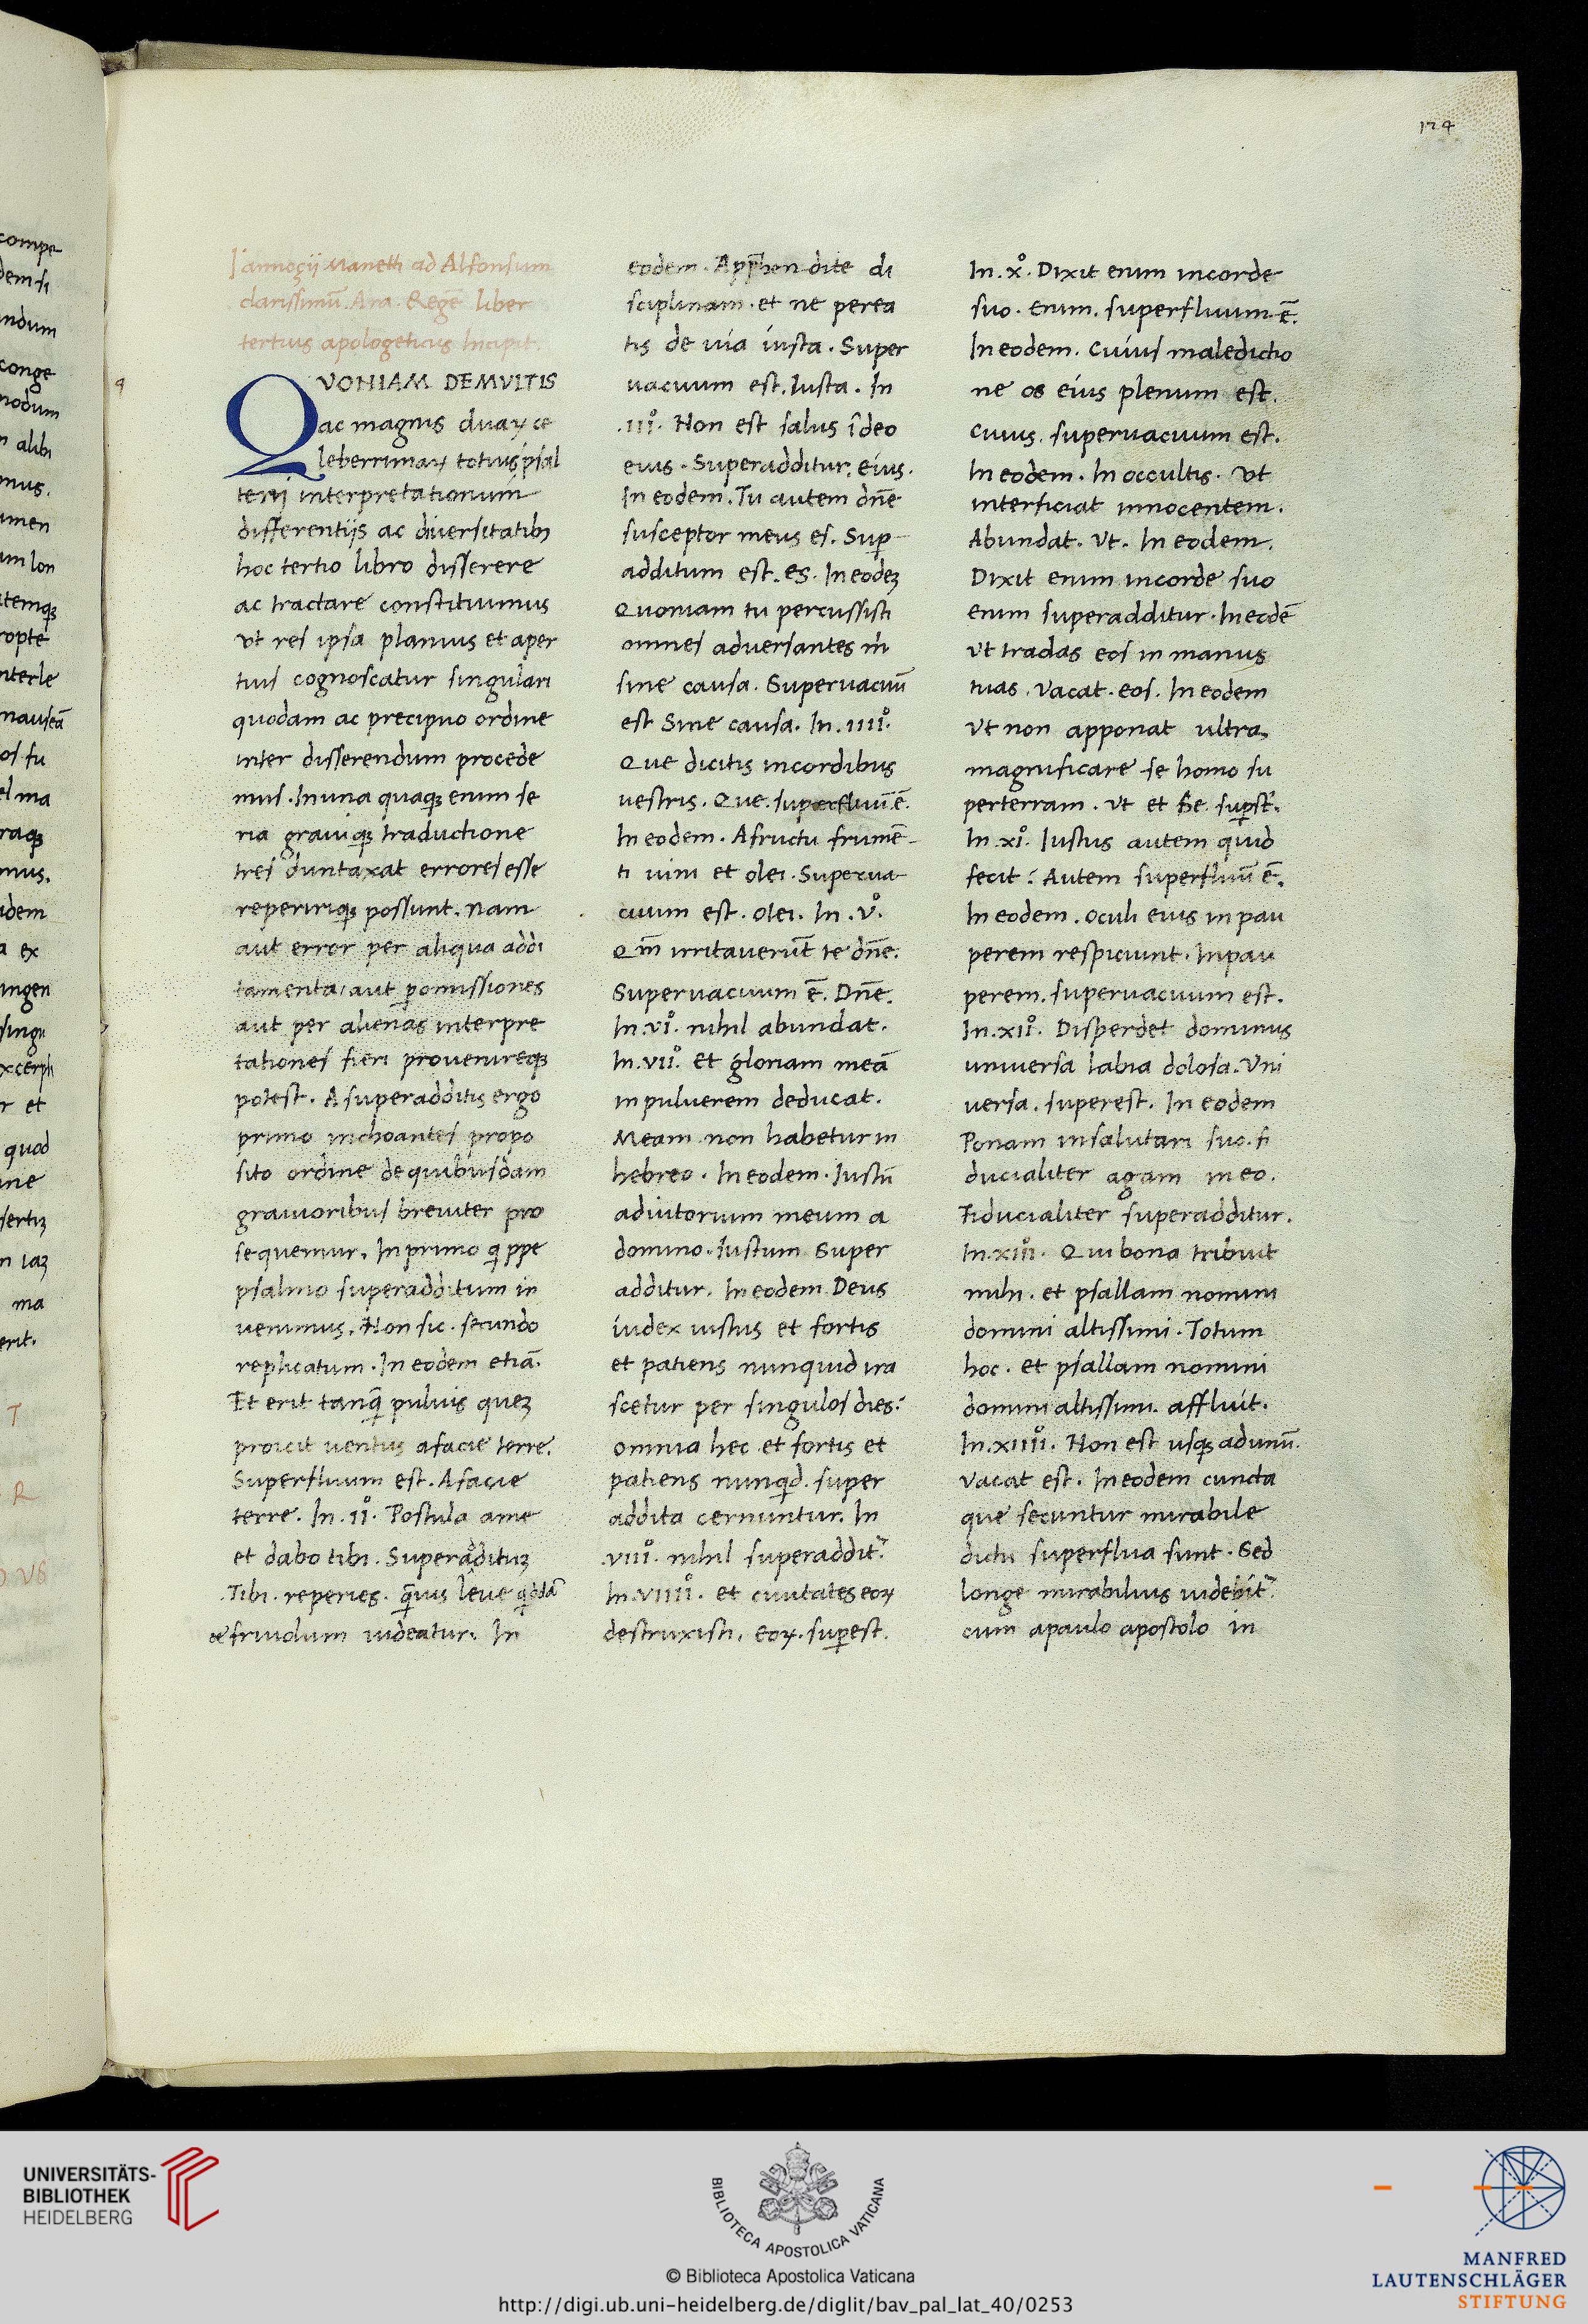 124
compe
dem si
undum
conge
modum
n alibi
mus.
umen
um lon
temqꝫ
ropte
nterle
nauseā
os su
el ma
raqꝫ
mus.
idem
a ex
ingen
singu
xcerpti
r et
quod
ine
sertiꝫ
n iaꝫ
ma
erit.
T
R
O VS
Iannogii Manetti ad Alfonsum
clarissimū Ara. Regē liber
tertius apologeticus Incipit.
QVONIAM DEMVLTIS
ac magnis duaꝝ ce
leberrimaꝝ totius psal
terij interpretationum
differentijs ac diversitatibꝫ
hoc tertio libro disserere
ac tractare constituimus
vt res ipsa planius et aper
tius cognoscatur singulari
quodam ac precipuo ordine
inter disserendum procede
mus. In una quaqꝫ enim se
ria gravíqꝫ traductione
tres duntaxat errores esse
repeririqꝫ possunt. Nam
aut error per aliqua addi
tamenta, aut ꝑ omissiones
aut per alienas interpre
tationes fieri provenireqꝫ
potest. A superadditis ergo
primo inchoantes propo
sito ordine de quibusdam
gravioribus breviter pro
sequemur. In primo quippe
psalmo superadditum in
venimus. Non sic. secundo
replicatum. In eodem etiā.
Et erit tanq̄ pulvis queꝫ
proicit ventus afacie terre.
Superfluum est. Afacie
terre. In .ii°. Postula ame
et dabo tibi. Superadditum
.Tibi. reperies. q̄vis leve q̇ddā
et frivolum videatur. In
eodem. Apprehendite di
sciplinam. et ne perea
tis de via iusta. Super
vacuum est. Iusta. In
.iii°. Non est salus ī deo
eius. Superadditur. eius.
In eodem. Tu autem dn̄e
susceptor meus es. Suꝑ
additum est. es. In eodeꝫ
Quoniam tu percussisti
omnes adversantes m̄
sine causa. Supervacuū
est Sine causa. In .iiii°.
Que dicitis incordibus
vestris. Que. superfluū ē.
In eodem. Afructu frumē
ti vini et olei. Superva
cuum est. olei. In .v°.
Qm̄ irritaverūt te dn̄e.
Supervacuum ē. Dn̄e.
In .vi°. nihil abundat.
In .vii°. et gloriam meā
in pulverem deducat.
Meam non habetur in
hebreo. In eodem. Iustū
adiutorium meum a
domino. Iustum Super
additur. In eodem Deus
iudex iustus et fortis
et patiens nunquid ira
scetur per singulos dies:
omnia hec et fortis et
patiens nunq̇d. super
addita cernuntur. In
.viii°. nihil superaddit̄.
In .viiii°. et civitates eoꝝ
destruxisti. Eoꝝ. suꝑest.
In .x°. Dixit enim incorde
suo. enim. superfluum ē.
In eodem. Cuius maledictio
ne os eius plenum est.
cuius. supervacuum est.
In eodem. In occultis. vt
interficiat innocentem.
Abundat. vt. In eodem.
Dixit enim incorde suo
enim superadditur. In eodē
vt tradas eos in manus
tuas. vacat. eos. In eodem
vt non apponat ultra
magnificare se homo su
perterram. vt et se. suꝑst̄.
In .xi°. Iustus autem quid
fecit: Autem superfluū ē.
In eodem. oculi eius in pau
perem respiciunt. Inpau
perem. supervacuum est.
In .xii°. Disperdet dominus
universa labia dolosa. Vni
versa. superest. In eodem
Ponam insalutari suo. fi
ducialiter agam in eo.
Fiducialiter superadditur.
In .xiii°. Qui bona tribuit
mihi. et psallam nomini
domini altissimi. Totum
hoc. et psallam nomini
domini altissimi. affluit.
In .xiiii°. Non est usqꝫ adunū.
vacat est. In eodem cuncta
que secuntur mirabile
dictu superflua sunt. Sed
longe mirabilius videbit̄.
cum apaulo apostolo in
UNIVERSITÄTS-
BIBLIOTHEK
HEIDELBERG
BIBLIOTECA APOSTOLICA VATICANA
© Biblioteca Apostolica Vaticana
http://digi.ub.uni-heidelberg.de/diglit/bav_pal_lat_40/0253
MANFRED
LAUTENSCHLÄGER
STIFTUNG